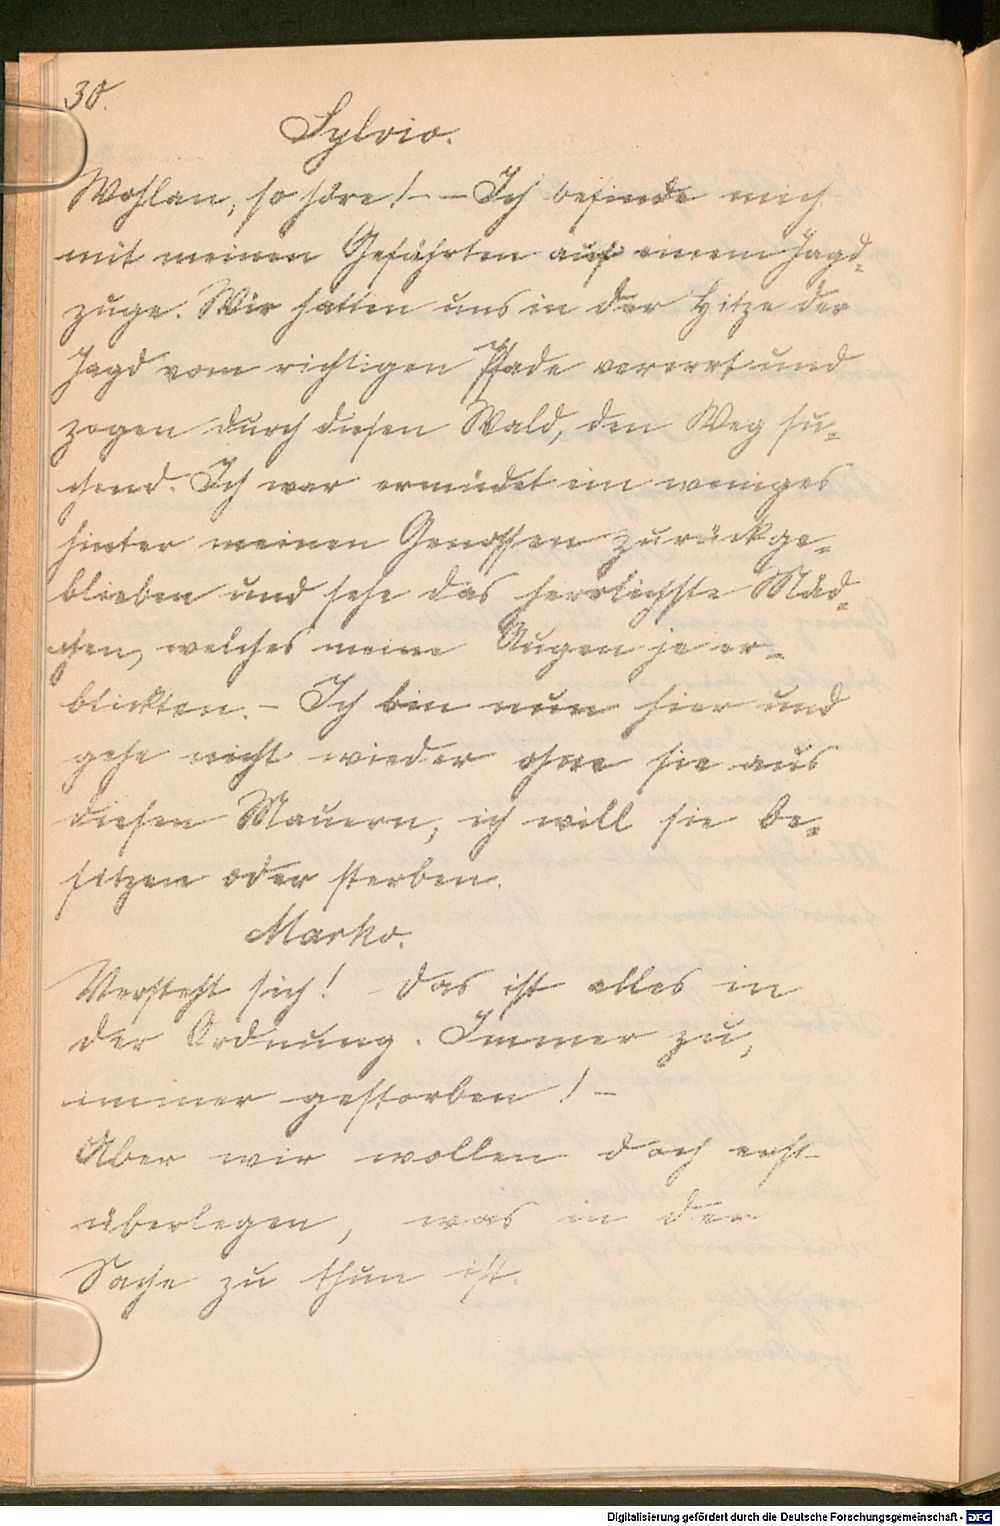 30.
Sylvio.
Wohlan, so höre! – – Ich befinde mich
mit meinen Gefährten auf einem Jagd-
zuge. Wir hatten uns in der Hitze der
Jagd vom richtigen Pfade verirrt und
zogen durch diesen Wald, den Weg su-
chend. Ich war ermüdet ein weniges
hinter meinen Genossen zurückge-
blieben und sehe das herrlichste Mäd-
chen, welches meine Augen je er-
blickten. – Ich bin nun hier und
gehe nicht wieder ohne sie aus
diesen Mauern, ich will sie be-
sitzen oder sterben.
Marko.
Versteht sich! das ist alles in
der Ordnung. Immer zu,
immer gestorben! –
Aber wir wollen doch erst
überlegen, was in der
Sache zu thun ist.
Digitalisierung gefördert durch die Deutsche Forschungsgemeinschaft - DFG